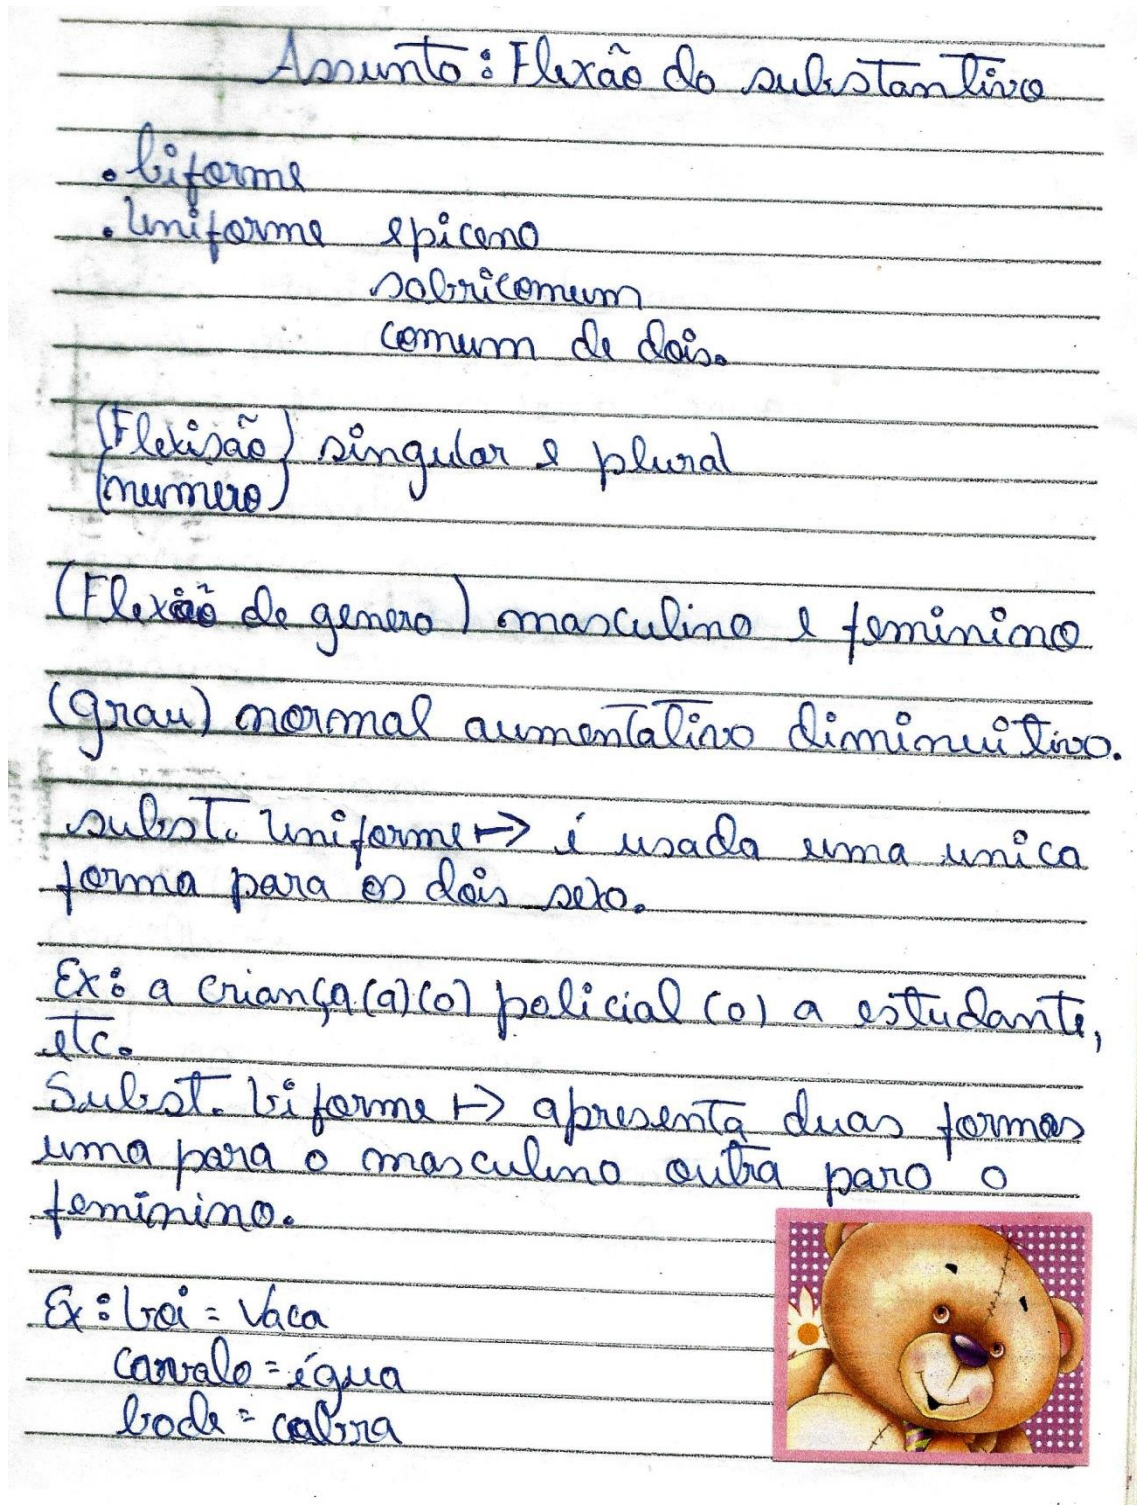 Assunto: Flexão do substantivo
. biforme
. Uniforme epiceno
sobricomum
comum de dois.
(Flexisão) singular e plural
(numero)
(Flexão de genero) masculino e feminino
(grau) normal aumentativo diminuitivo.
subst. Uniforme → é usada uma unica
forma para os dois sexo.
Ex: a criança (a) (o) policial (o) a estudante,
etc.
Subst. biforme → apresenta duas formas
uma para o masculino outra paro o
feminino.
Ex: boi = Vaca
cavalo = égua
bode = cabra